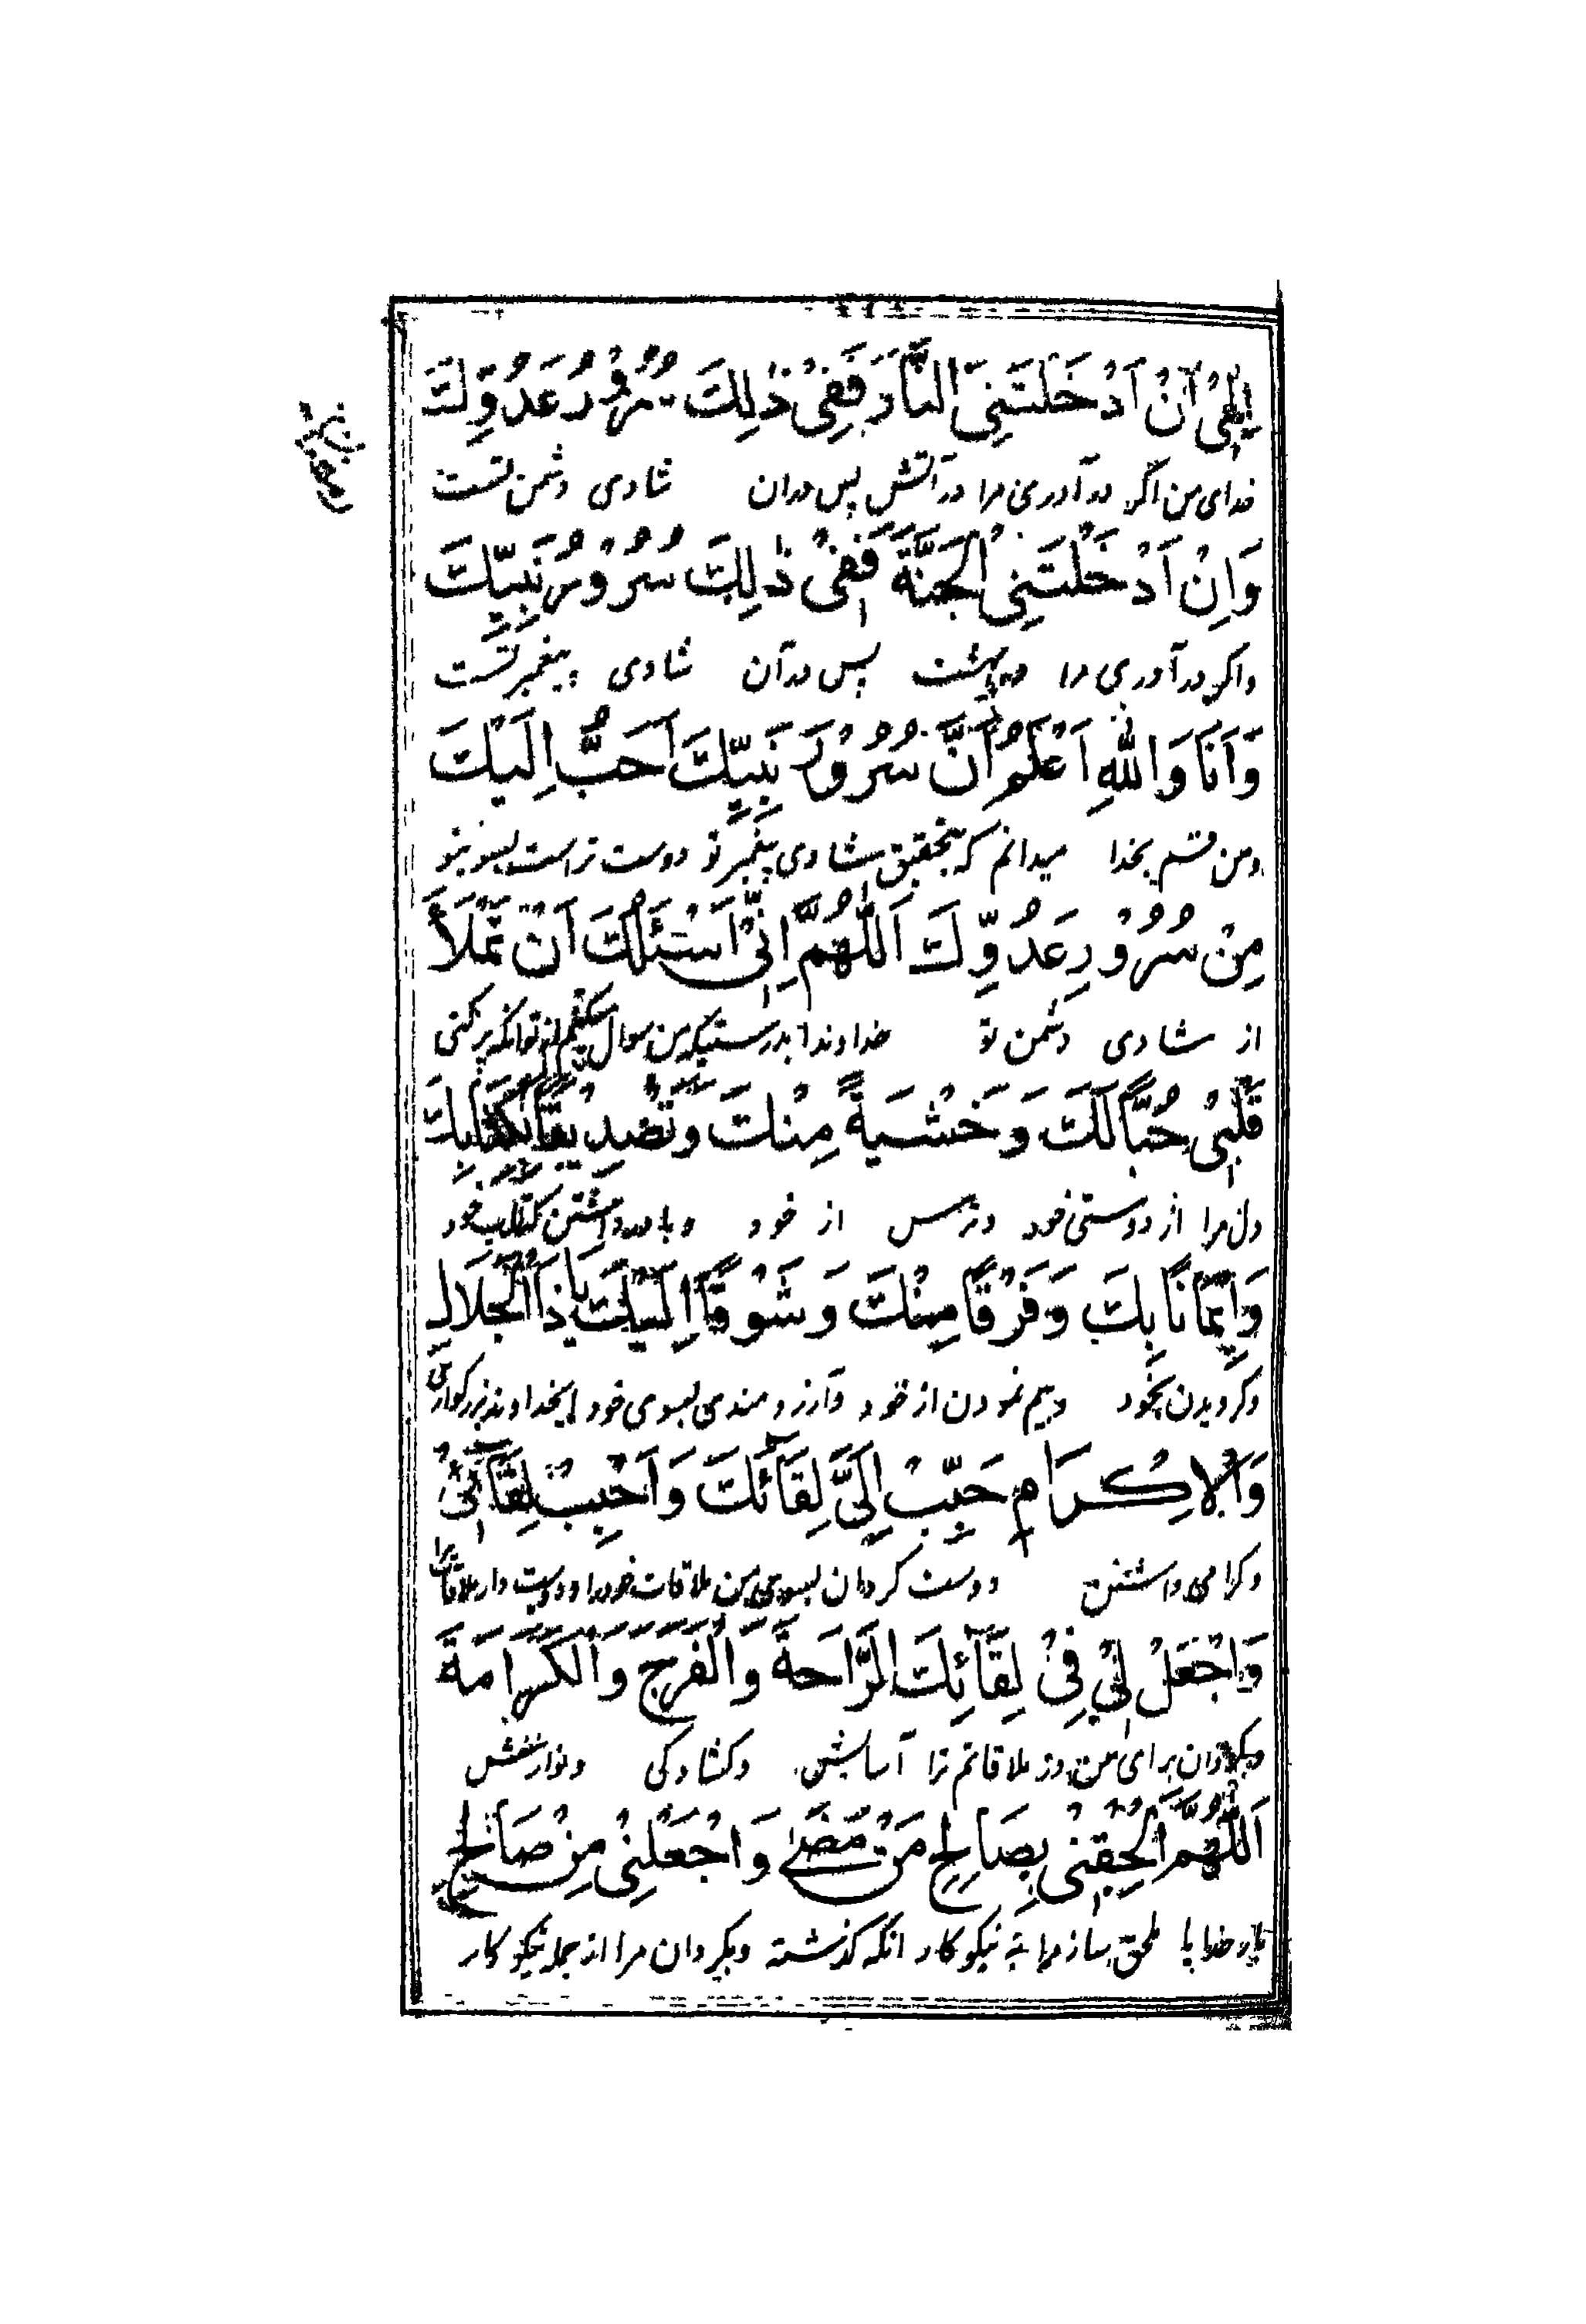 اِلٰهِیْ اَنْ اَدْخَلْتَنِی النَّارَ فَفِیْ ذٰلِكَ سُرُوْرُ عَدُوِّكَ
خدای من اگر در آوری مرا در آتش پس دران شادی دشمن تست
وَاِنْ اَدْخَلْتَنِی الْجَنَّةَ فَفِیْ ذٰلِكَ سُرُوْرُ نَبِیِّكَ
واگر در آوری مرا در بهشت پس در آن شادی پیغمبر تست
وَاَنَا وَاللهِ اَعْلَمُ اَنَّ سُرُوْرَ نَبِیِّكَ اَحَبُّ اِلَیْكَ
ومن قسم بخدا میدانم که بتحقیق شادی پیغمبر تو دوست تراست بسوی تو
مِنْ سُرُوْرِ عَدُوِّكَ اَللّٰهُمَّ اِنِّیْ اَسْئَلُكَ اَنْ تَمْلَأَ
از شادی دشمن تو خداوندا بدرستیکه من سوال میکنم از تو انکه پر کنی
قَلْبِیْ حُبًّا لَكَ وَخَشْیَةً مِنْكَ وَتَصْدِیْقًا بِكِتَابِكَ
دل مرا از دوستی خود وترس از خود وباور داشتن کتاب خود
وَاِیْمَانًا بِكَ وَفَرْقًا مِنْكَ وَشَوْقًا اِلَیْكَ یَا ذَا الْجَلَالِ
وگرویدن بخود وبیم نمودن از خود وآرزومندی بسوی خود ایخداوند بزرگواری
وَالْاِكْرَامِ حَبِّبْ اِلَیَّ لِقَائَكَ وَاَحْبِبْ لِقَائِیْ
وگرامی داشتن دوست گردان بسوی من ملاقات خود را ودوست دار ملاقات مرا
وَاجْعَلْ لِیْ فِیْ لِقَائِكَ الرَّاحَةَ وَالْفَرَجَ وَالْكَرَامَةَ
وبگردان برای من در ملاقاتم ترا آسایش وکشادگی ونوازش
اَللّٰهُمَّ اَلْحِقْنِیْ بِصَالِحِ مَنْ مَضٰی وَاجْعَلْنِیْ مِنْ صَالِحِ
بار خدایا ملحق ساز مرا به نیکوکار انکه گذشته وبگردان مرا از جمله نیکوکار